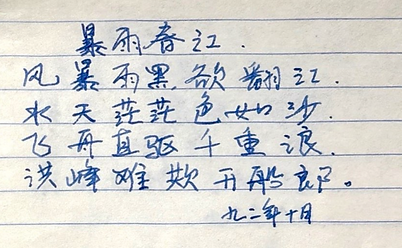 暴雨春江.
风暴雨黑欲翻江.
水天茫茫色如沙.
飞舟直驱千重浪.
洪峰难欺开船郎。
九二年十月